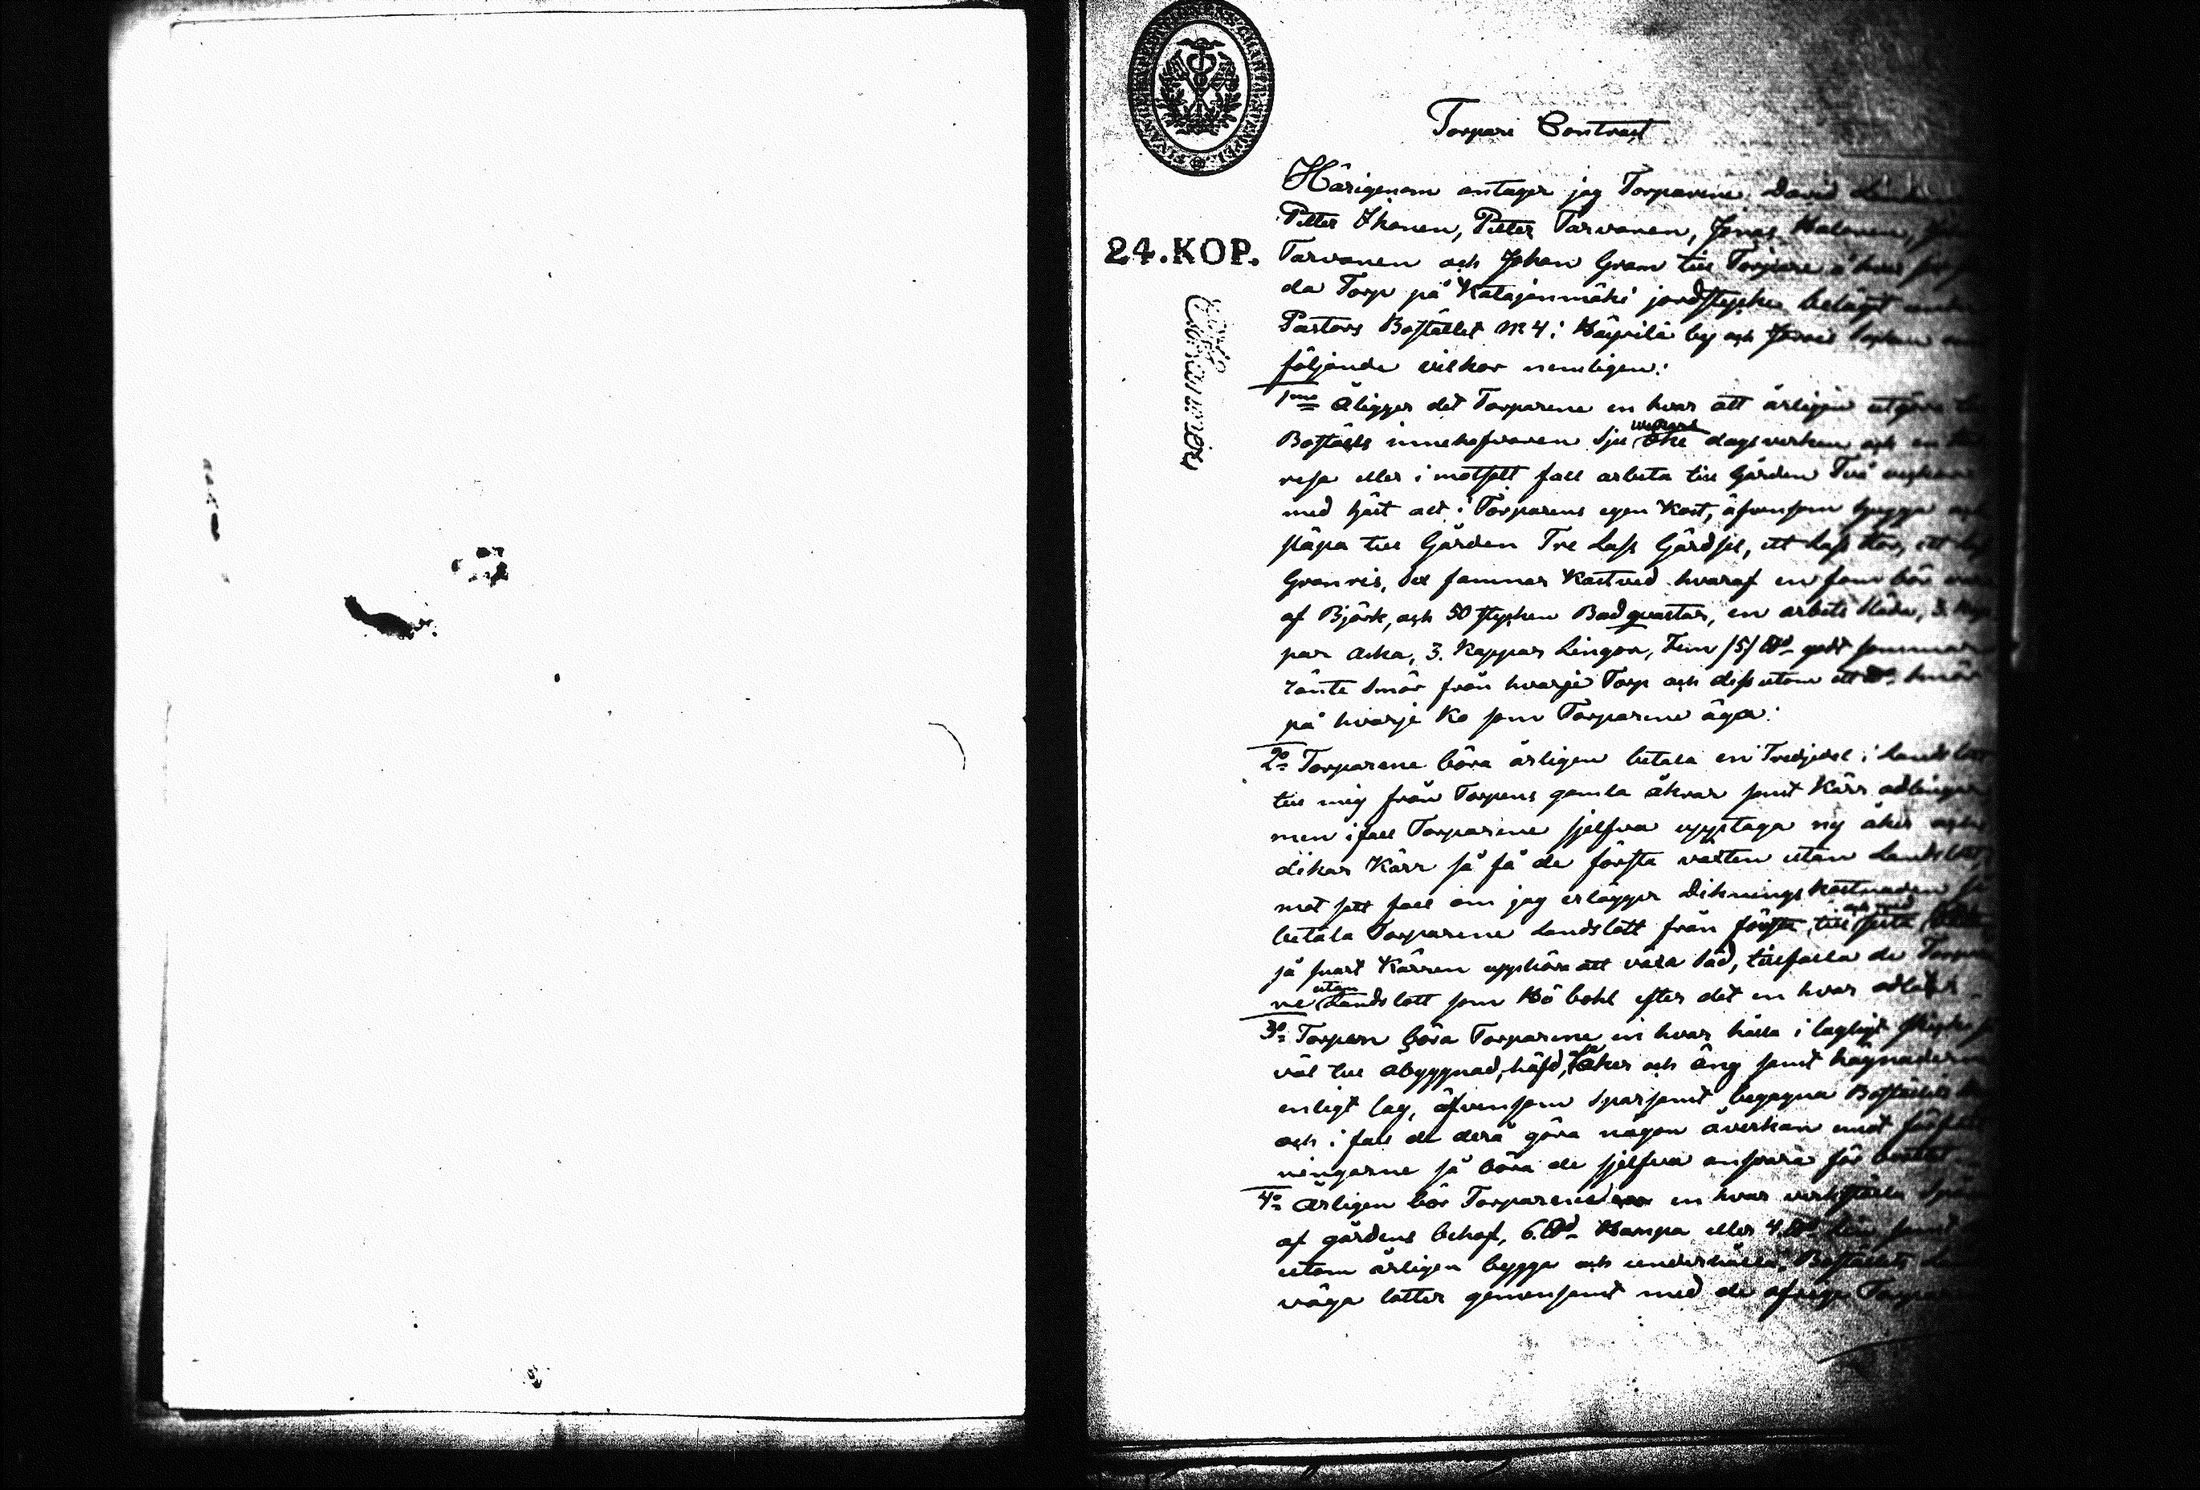 Torpare Contract
Härigenom antager jag Torparene David
Petter Ikonen, Petter Tarvonen, Jonas Halonen,
24. KOP. Tarvanen och Johan Gram till Torpare å hvar
da Torp på Katajanmäki jordstycke belägit under
Pastors Bostället № 4 i Häyrilä by och socken
följande vilkor nemligen:
1mo Åligger det Torparene en hvar att årligen utgöra
Boställs innehafvaren sju öke dagsverken och en
resa eller i motsatt fall arbeta till Gården Två veckor
med häst allt i Torparens egen Kost, äfvensom hugga och
släpa till Gården Tre Lass Gärdsel, ett Lass Stör, ett
Granris, sex famnar Kastved hvaraf en famn bör vara
af Björk, och 50 stycken Badqvastar, en arbets släda, 3. Kap
par Aska, 3. Kappar Lingon, Fem /5/ godt sommar
ränte smör från hvarje Torp och dessutom ett smör
på hvarje Ko som Torparene äga:
2o Torparene böra årligen betala en Tredjedel i Landslott
till mig från Torpens gamla åkrar samt Kärr odlingar
men ifall Torparene sjelfva upptaga ny åker och
dikar Kärr så få de första växten utan Landslott,
mot satt fall om jag erlägger Diknings kostnaden så
betala Torparene Landslott från första till sista
så snart Kärren upphöra att växa säd, tillfalla de
ne utan Landslott som Hö bohl efter det en hvar odlat
3o Torpen böra Torparene en hvar hålla i lagligt skick
väl till åbyggnad, häfd, åker och äng samt hägnaderna
enligt lag, äfvensom sparsamt begagna Boställets
och i fall de derå göra någon åverkan emot författ
ningarne så böra de sjelfva ansvara för brottet
4o Årligen bör Torparene en hvar verkställa
af gårdens behof, 6. Hampa eller 4. Lin samt
utom årligen bygga och underhålla Boställets
väga lotter gemensamt med de öfriga